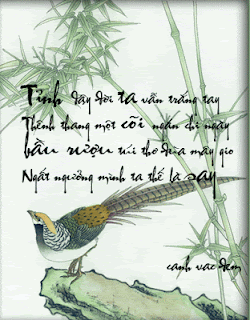 Tỉnh dậy đời ta vẫn trắng tay
Thênh thang một cõi ngàn chỉ ngày
bầu rượu túi thơ đùa mây gió
Ngất ngưởng mình ta thế là say
cánh vạc đêm